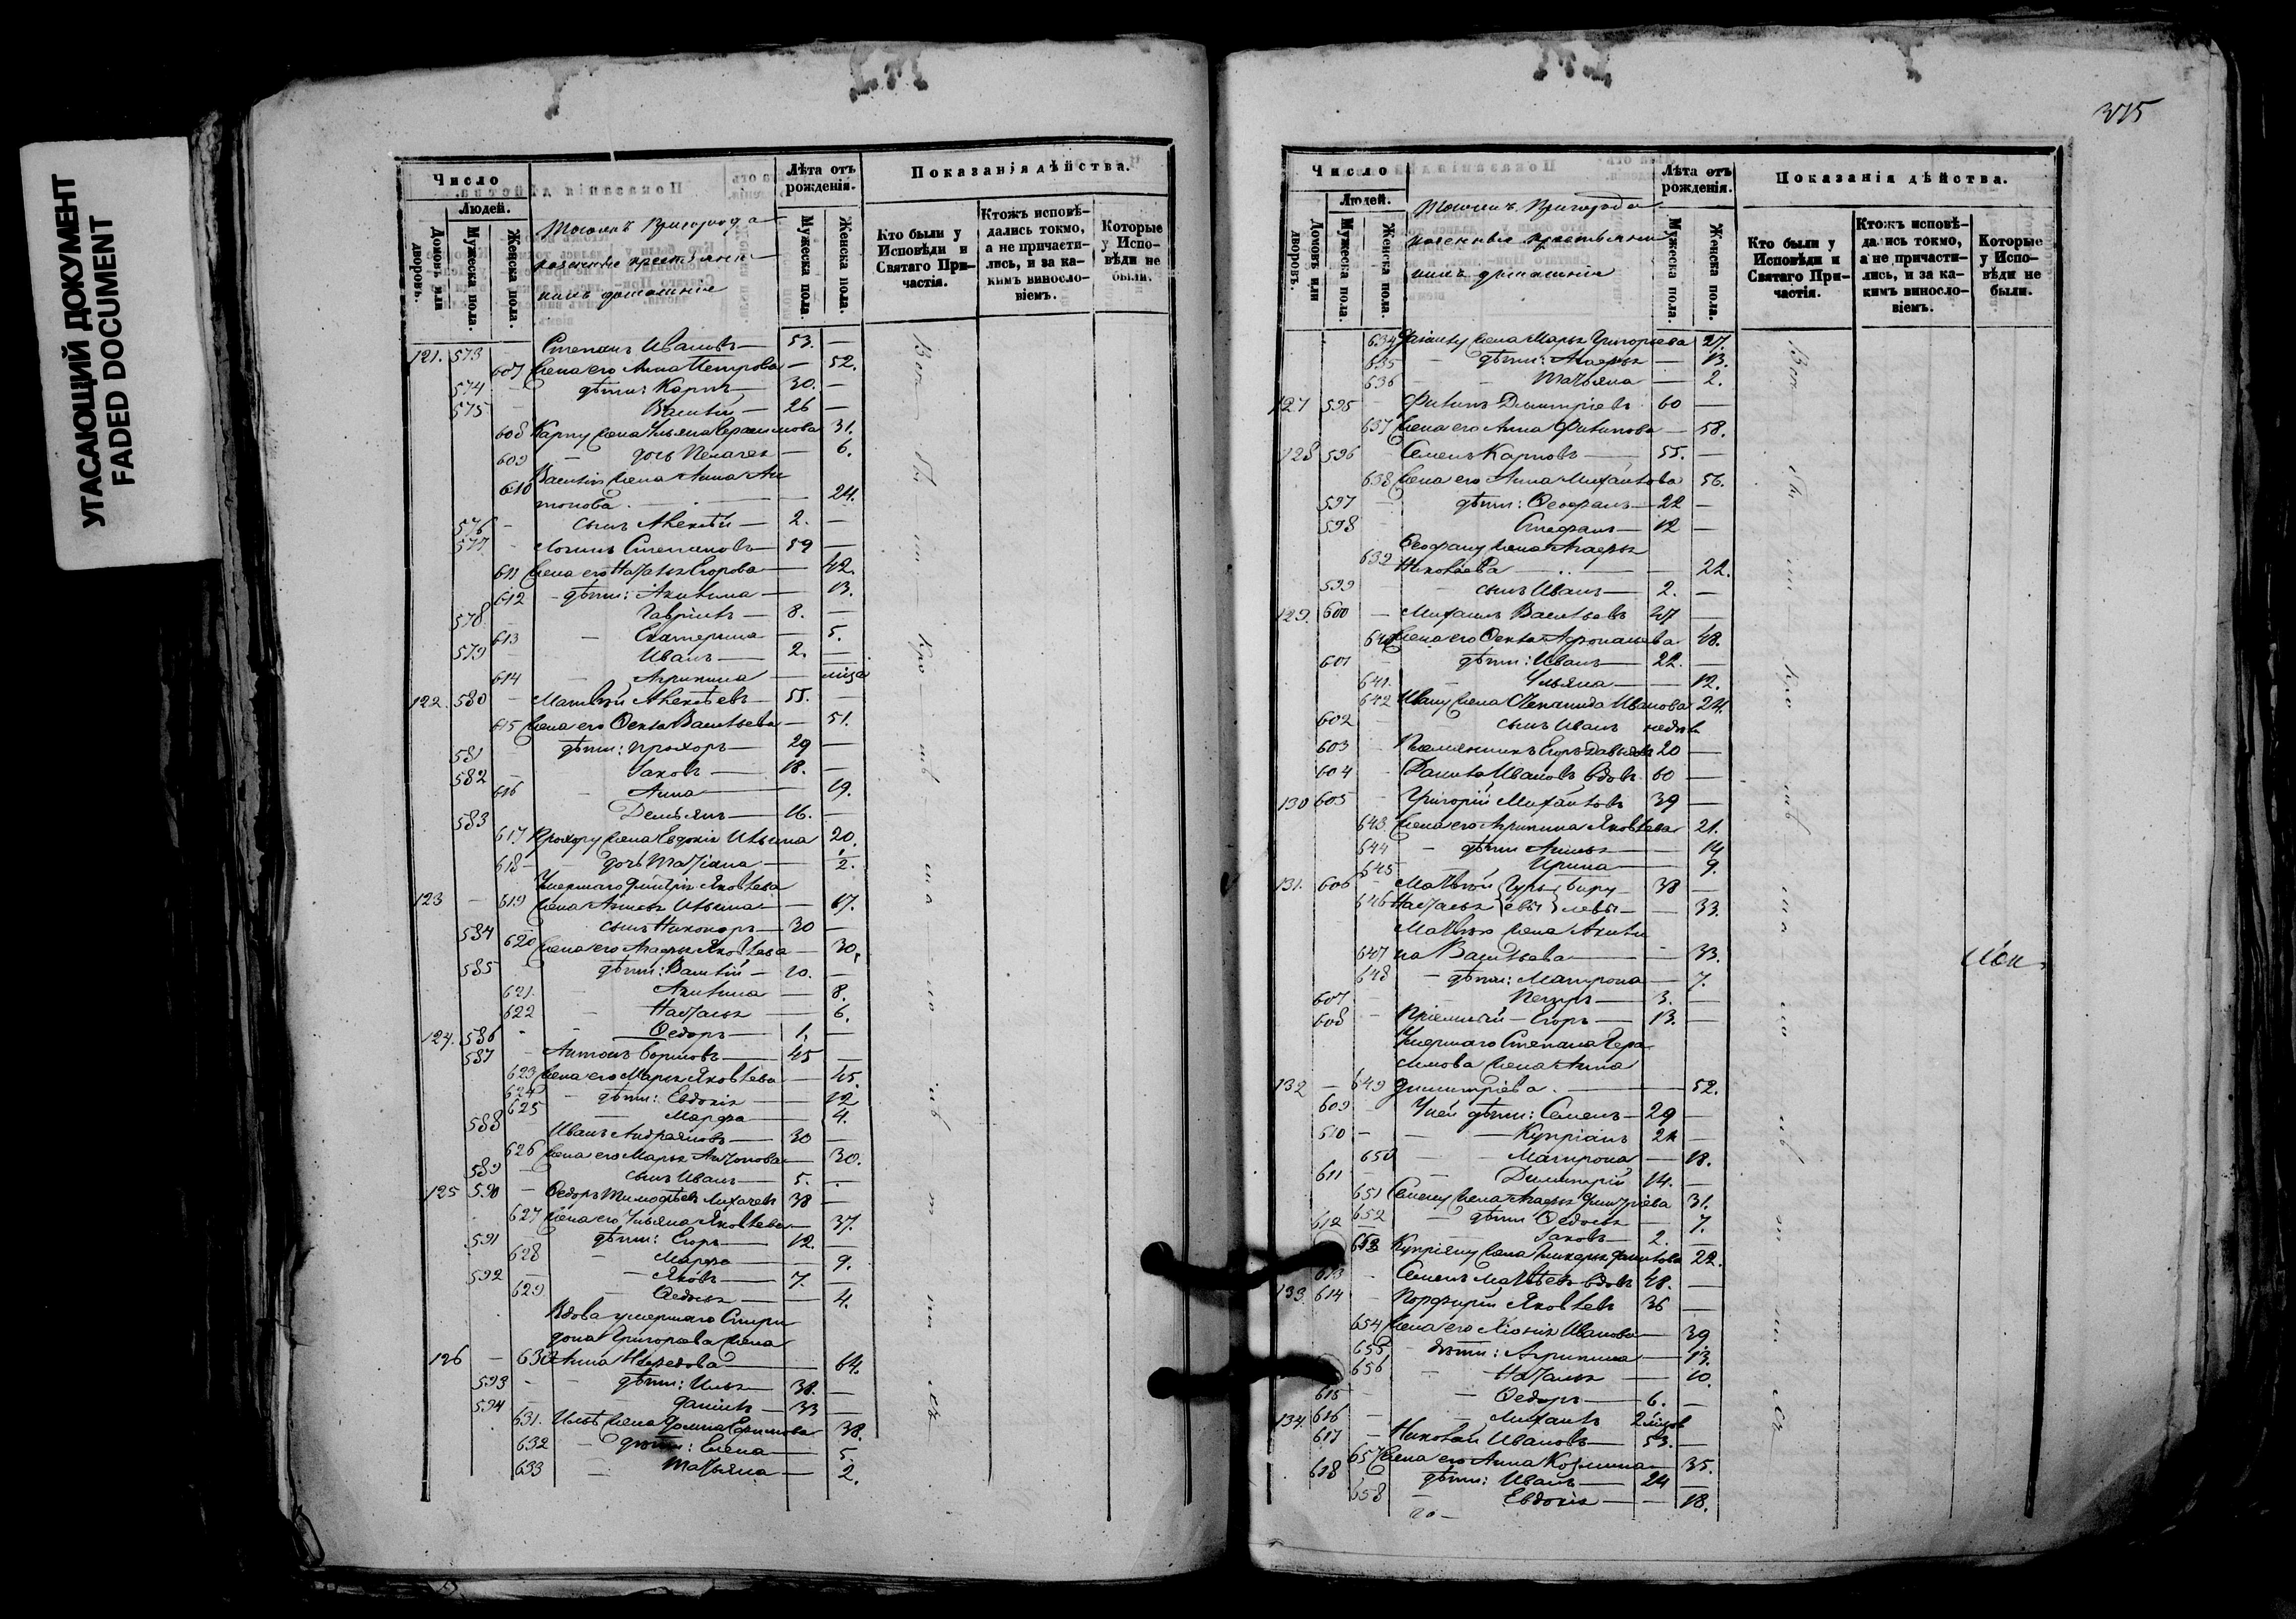 УГАСАЮЩИЙ ДОКУМЕНТ
FADED DOCUMENT
Число
Людей.
Домовъ или дворовъ.
Мужеска пола.
Женска пола.
казенные крестьяни
ихъ домашніе
Лѣта отъ рожденія.
Мужеска пола.
Женска пола.
Показанія дѣйства.
Кто были у Исповѣди и Святаго Причастія.
Ктожъ исповѣдались токмо, а не причастились, и за какимъ винословіемъ.
Которые у Исповѣди не были.
121. 573 Степанъ Ивановъ — 53. —
607 Жена его Анна Петрова — 52.
574 — дѣти: Карпъ — 30. —
575 — Василій — 26 —
608 Карпу жена Ульяна Герасимова 31.
609 — дочь Пелагея — 6.
610 Василія жена Анна Ан
тонова — 24.
576 — сынъ Алексѣй — 2. —
577 — Логинъ Степановъ — 59 —
611 Жена его Наталья Егорова — 42.
612 — дѣти: Акилина — 13.
578 — Гавріилъ — 8. —
613 — Екатерина — 5.
579 Иванъ — 2. —
614 — Агрипина —
122. 580 — Матвѣй Алексѣевъ — 55. —
615 Жена его Фекла Васильева — 51.
581 дѣти: Прохоръ — 29 —
582 — Іаковъ — 18. —
616 — Анна — 19.
583 Демьянъ — 16. —
617 Прохору жена Евдокія Ильина 20.
618 — дочь Татіана — 2.
Умершаго Дмитрія Яковлева
123 — 619 Жена Анисья Ильина — 67.
584 сынъ Никоноръ — 30 —
620 Жена его Агафья Яковлева — 30.
585 дѣти: Василій — 10. —
621. Акилина — 8.
622 — Наталья — 6.
124. 586 - - Ѳедоръ — 1. —
587 — Антонъ — 45 —
623 Жена его Марья Яковлева — 45.
624 — дѣти: Евдокія — 12
625 — Марфа — 4.
588 Иванъ Андреяновъ — 30 —
626 Жена его Марья Антонова — 30.
589 — сынъ Иванъ — 5. —
125 590 — Ѳедоръ Тимофѣевъ Лихачевъ 38 —
627 Жена его Ульяна Яковлева — 37.
591 — дѣти: Егоръ — 12. —
628 — Марфа — 9.
592 — Яковъ — 7. —
629 — Федосья — 4.
Вдова умершаго Спири
дона Григорьева жена
126 — 630 Анна — 64.
593 — дѣти: Илья — 38. —
594 — Даніилъ — 33 —
631. Ильѣ жена Домна Ефимова 38.
632 — дѣти: Елена — 5.
633 — Татьяна — 2.
375
Число
Людей.
Домовъ или дворовъ.
Мужеска пола.
Женска пола.
казенные крестьяни
ихъ домашніе
Лѣта отъ рожденія.
Мужеска пола.
Женска пола.
Показанія дѣйства.
Кто были у Исповѣди и Святаго Причастія.
Ктожъ исповѣдались токмо, а не причастились, и за какимъ винословіемъ.
Которые у Исповѣди не были.
634 Даніилу жена Марья Григорьева 27.
635 — дѣти: Агафья — 13.
636 — Татьяна — 2.
127 595 — Филипъ Дмитріевъ 60 —
637 Жена его Анна Филипова — 58.
128 596 — Семенъ Карповъ — 55. —
638 Жена его Анна Михайлова 56.
597 — дѣти: Ѳеофанъ — 22 —
598 — Стефанъ — 12 —
Ѳеофану жена Агафья
639 Николаева — 22.
599 — сынъ Иванъ — 2. —
129. 600 — Михаилъ Васильевъ 47 —
640 Жена его Фекла Афонасьева 48.
601 — дѣти: Иванъ — 22. —
641. — Ульяна — 12.
642 Ивану жена Иванова 24.
602 — сынъ Иванъ
603 — Племянникъ Егоръ Давыдовъ 20 —
604 — Данила Ивановъ вдовъ 60 —
130 605 — Григорій Михайловъ 39 —
643. Жена его Агрипина Яковлева 21.
644 — дѣти Анисья — 14
645 — Ирина — 9.
131. 606 — Матвѣй Гурь 38 —
646 Наталья евы — 33.
Матвѣю жена Акили
647 на Васильева — 33.
648 — дѣти: Матрона — 7.
607 — Петръ — 3. —
608 — Пріемный — Егоръ — 13. —
Умершаго Степана Гера
симова жена Анна
132 — 649 Димитріева — 52.
609 — У ней дѣти: Семенъ — 29 —
610 — Купріанъ 24 —
650 — Матрона — 18.
611 — Димитрій 14. —
651 Семену жена Агафья Дмитріева 31.
652 — дѣти Федосья — 7.
612 — Іаковъ — 2. —
653 Купріяну жена Данилова 22.
613 — Семенъ Матвѣевъ вдовъ 48. —
133. 614 — Порфирій Яковлевъ 36 —
654 Жена его Хіонія Иванова — 39.
655 — дѣти: Агрипина — 13.
656 — Наталья — 10.
615 — Ѳедоръ — 6. —
134. 616 — Михаилъ
617 — Николай Ивановъ — 53. —
657 Жена его Анна Козмина — 35.
618 дѣти: Иванъ — 24 —
658 — Евдокія — 18.